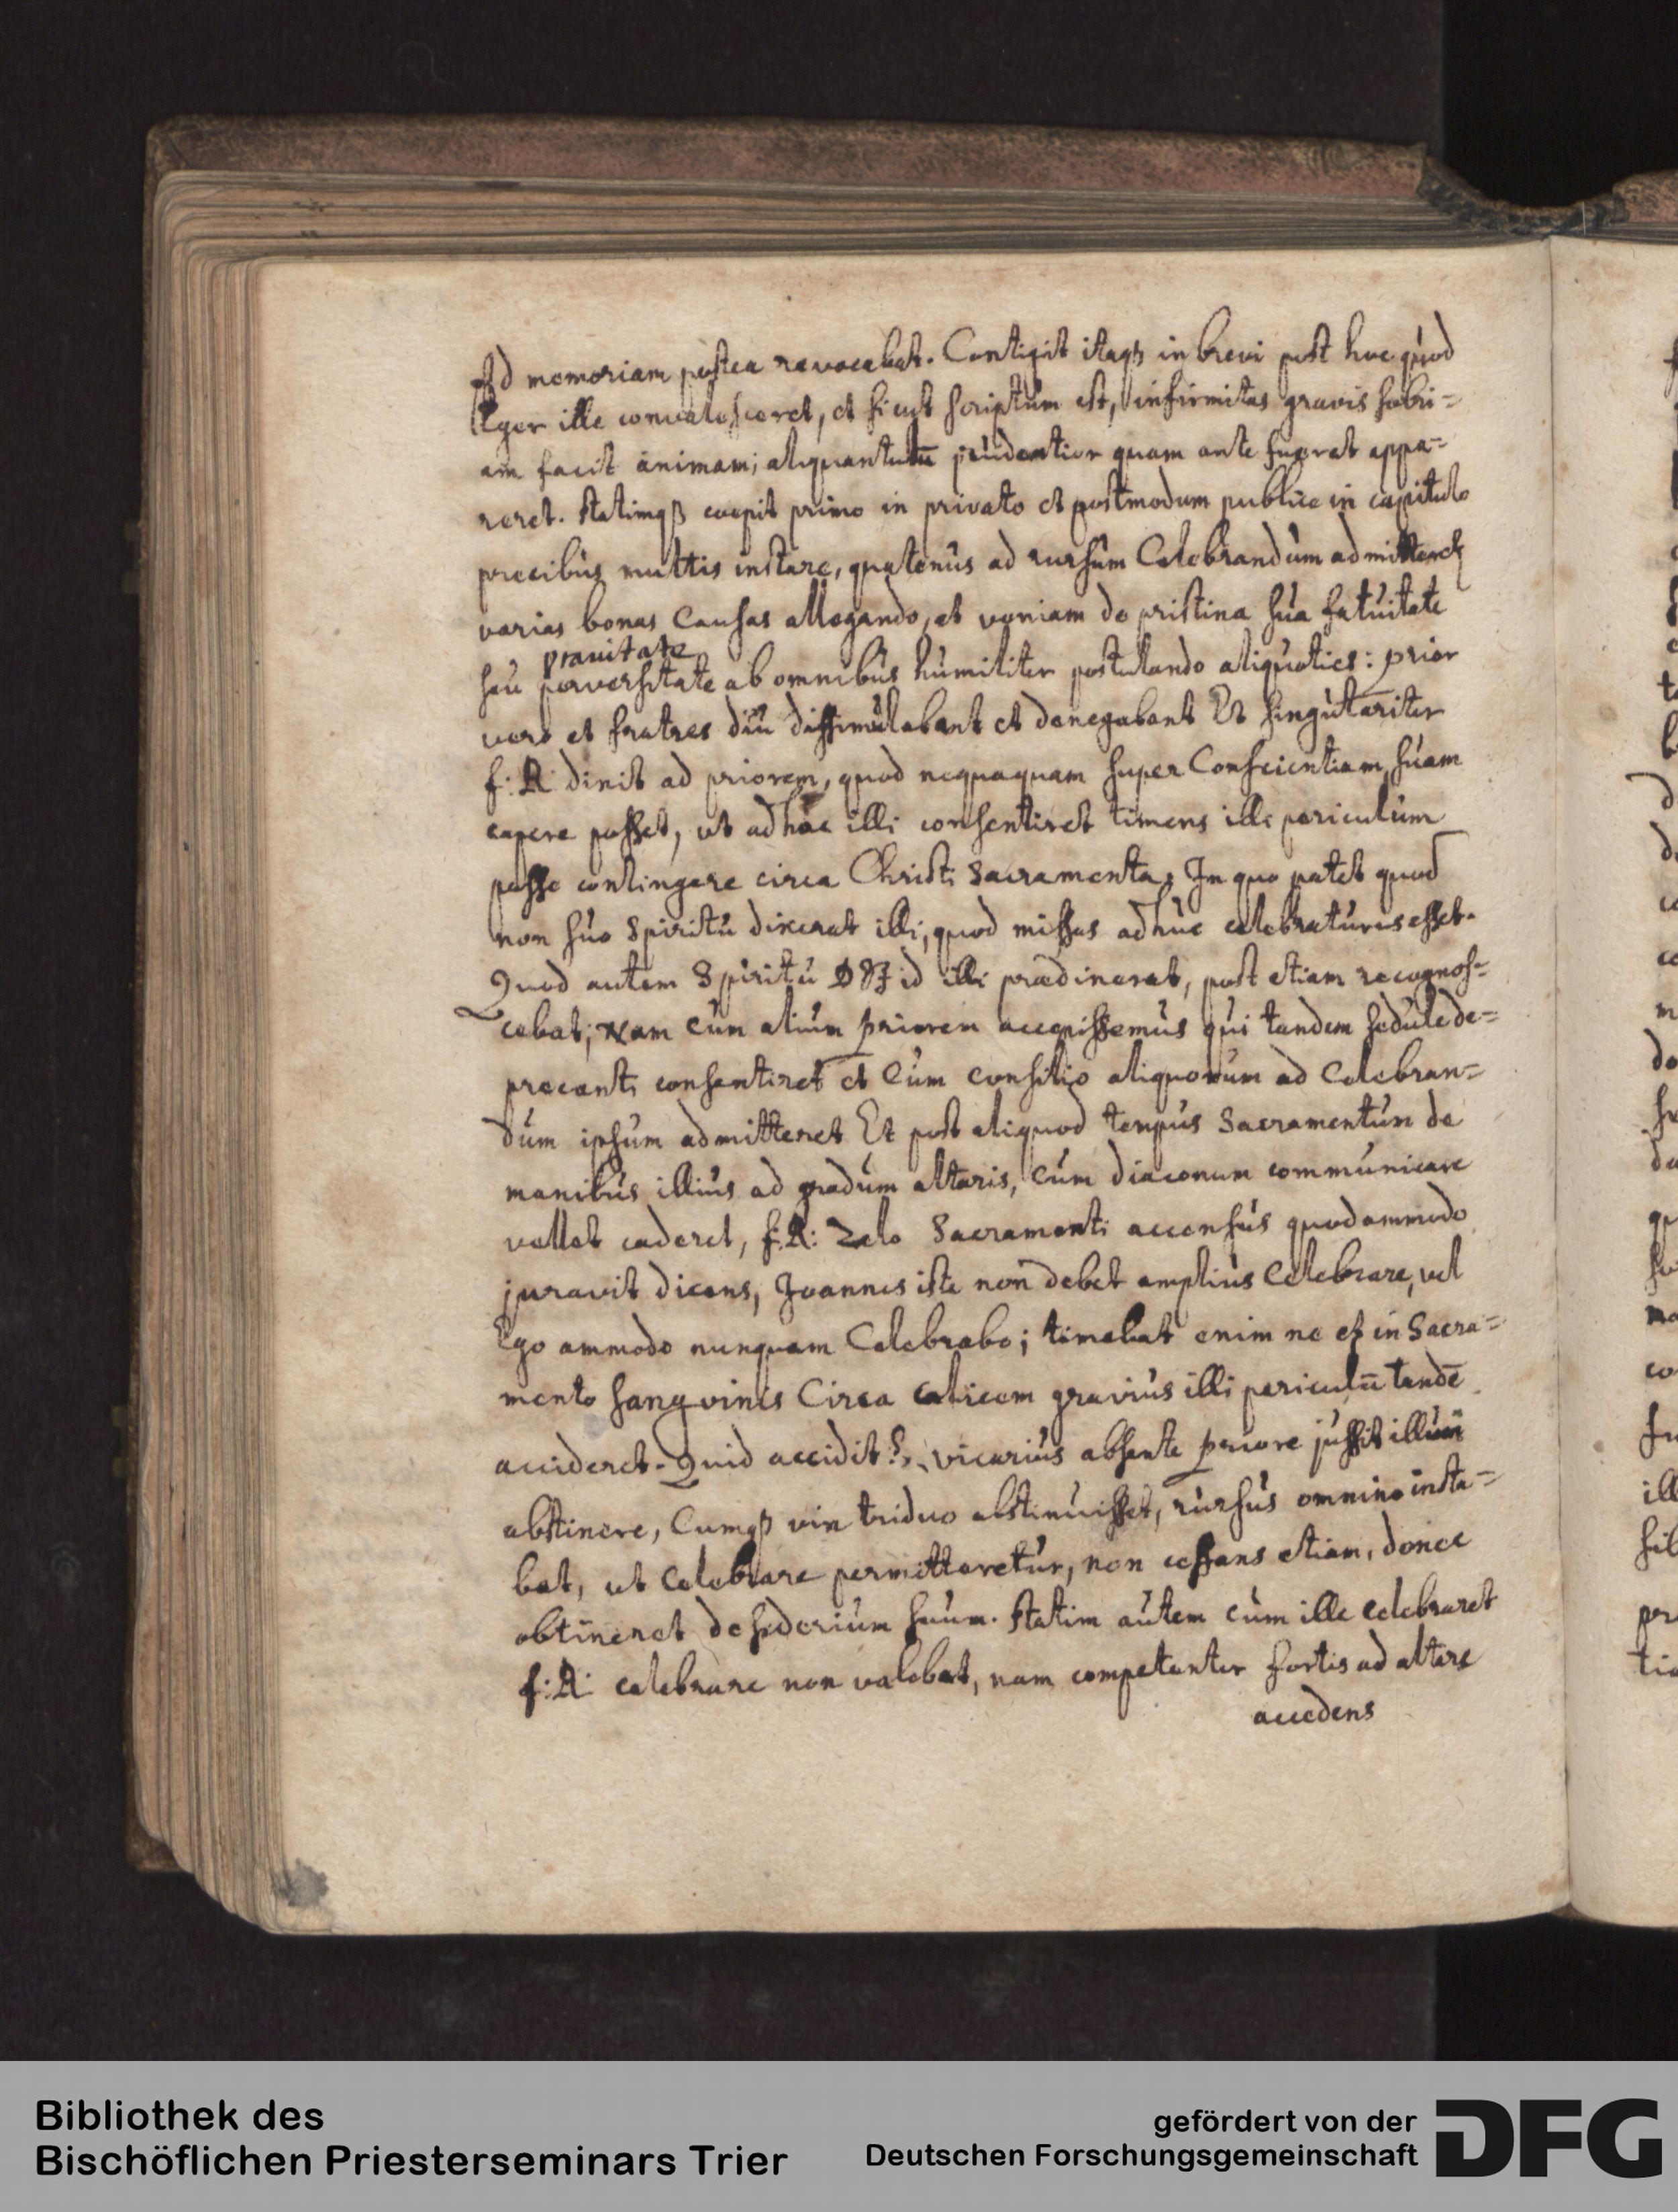 Ad memoriam postea revocabat. Contigit itaqß in brevi post hoc quod
Æger ille convalesceret, et sicut scriptum est, infirmitas gravis sobri=
am facit animam; aliquantulū prudentior quam ante fuerat appa=
reret. statimqß coepit primo in privato et postmodum publice in capitulo
precibus multis instare, quatenus ad rursum Celebrandum admitteret,
varias bonas Causas allegando, et veniam de pristina sua fatuitate
pravitate
seu perversitate ab omnibus humiliter postulando aliquoties: prior
vero et fratres diu dissimulabant et denegabant Et singulariter
f: A: dixit ad priorem, quod nequaquam super Conscientiam suam
capere posset, ut adhoc illi consentiret timens illi periculum
posse contingere circa Christi Sacramenta. In quo patet quod
non suo Spiritu dixerat illi, quod missas adhuc celebraturus esset.
Quod autem Spiritu id illi praedixerat, post etiam recognos=
cebat; Nam cum alium priorem accepissemus qui tandem sedule de=
precanti consentiret et Cum consilio aliquorum ad Celebran=
dum ipsum admitteret Et post aliquod tempus Sacramentum de
manibus illius ad gradum altaris, Cum diaconum communicare
vellet caderet, f: A: Zelo Sacramenti accensus quodammodo
juravit dicens, Joannes iste non debet amplius Celebrare, vel
Ego ammodo nunquam Celebrabo; timebat enim ne et in Sacra=
mento sangvinis Circa calicem gravius illi periculū tandē
accideret. Quid accidit? vicarius absente priore jussit illum
abstinere, Cumqß vix triduo abstinuisset, rursus omnino insta=
bat, ut Celebrare permitteretur, non cessans etiam, donec
obtineret desiderium suum. statim autem cum ille celebraret
f: A: celebrare non valebat, nam competenter fortis ad altare
accedens
Bibliothek des
Bischöflichen Priesterseminars Trier
gefördert von der
Deutschen Forschungsgemeinschaft
DFG